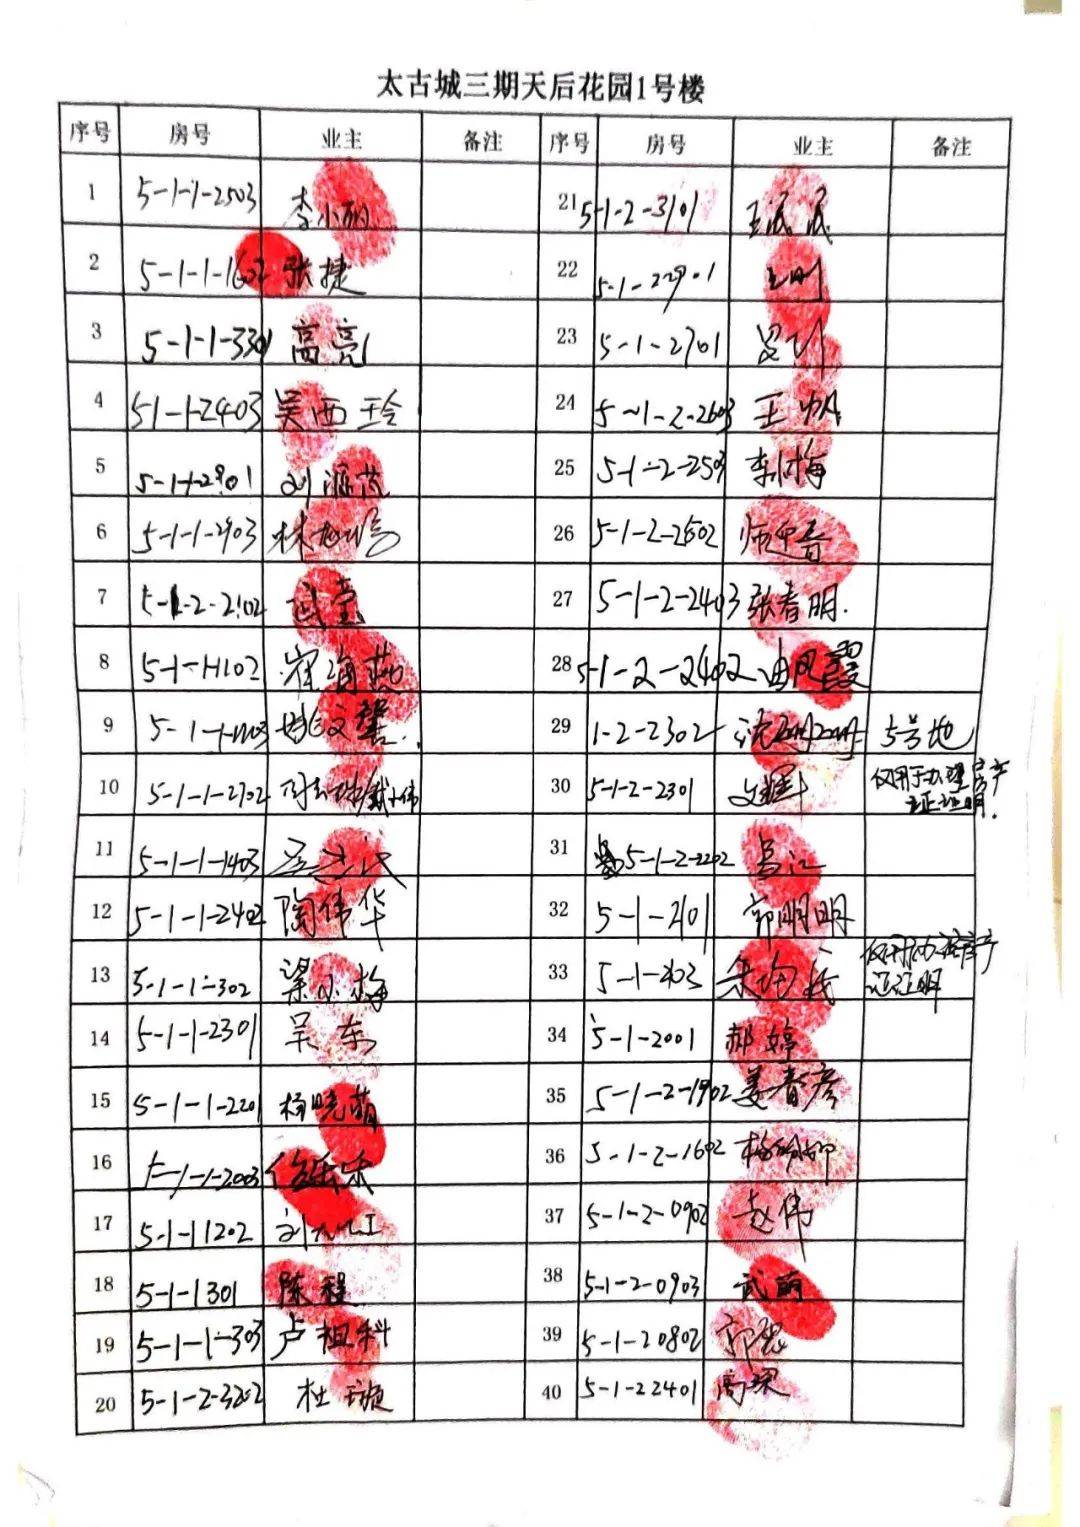 太古城三期天后花园1号楼
序号 房号 业主 备注 序号 房号 业主 备注
1 5-1-1-2503 李小丽 21 5-1-2-3101 王民
2 5-1-1-1602 张捷 22 5-1-2-2901 王刚
3 5-1-1-3301 高亮 23 5-1-2-2701
4 5-1-1-2403 吴西玲 24 5-1-2-2603 王帅
5 5-1-1-2901 刘 25 5-1-2-2503 李梅
6 5-1-1-2903 林 26 5-1-2-2502 师
7 5-1-2-2102 武莹 27 5-1-2-2403 张春明.
8 5-1-1-1102 崔海燕 28 5-1-2-2402 曲凤霞
9 5-1-1 姚文馨 29 1-2-2302 沈 5号地
10 5-1-1-2702 戴伟 30 5-1-2-2301 文辉 仅用于办理房产
证证明.
11 5-1-1-1403 31 5-1-2-2202 马江
12 5-1-1-2402 陶伟华 32 5-1-2101 郭明明
13 5-1-1-302 梁小梅 33 5-1-203 朱 仅用于办理房产
证证明
14 5-1-1-2301 吴东 34 5-1-2001 郝婷
15 5-1-1-2201 杨晓萌 35 5-1-2-1902 姜春彦
16 5-1-1-2003 徐乐乐 36 5-1-2-1602 杨
17 5-1-11202 刘 37 5-1-2-0902 赵伟
18 5-1-1301 陈程 38 5-1-2-0903 武萌
19 5-1-1-303 卢祖科 39 5-1-20802 郭
20 5-1-2-3202 杜璇 40 5-1-22401 高